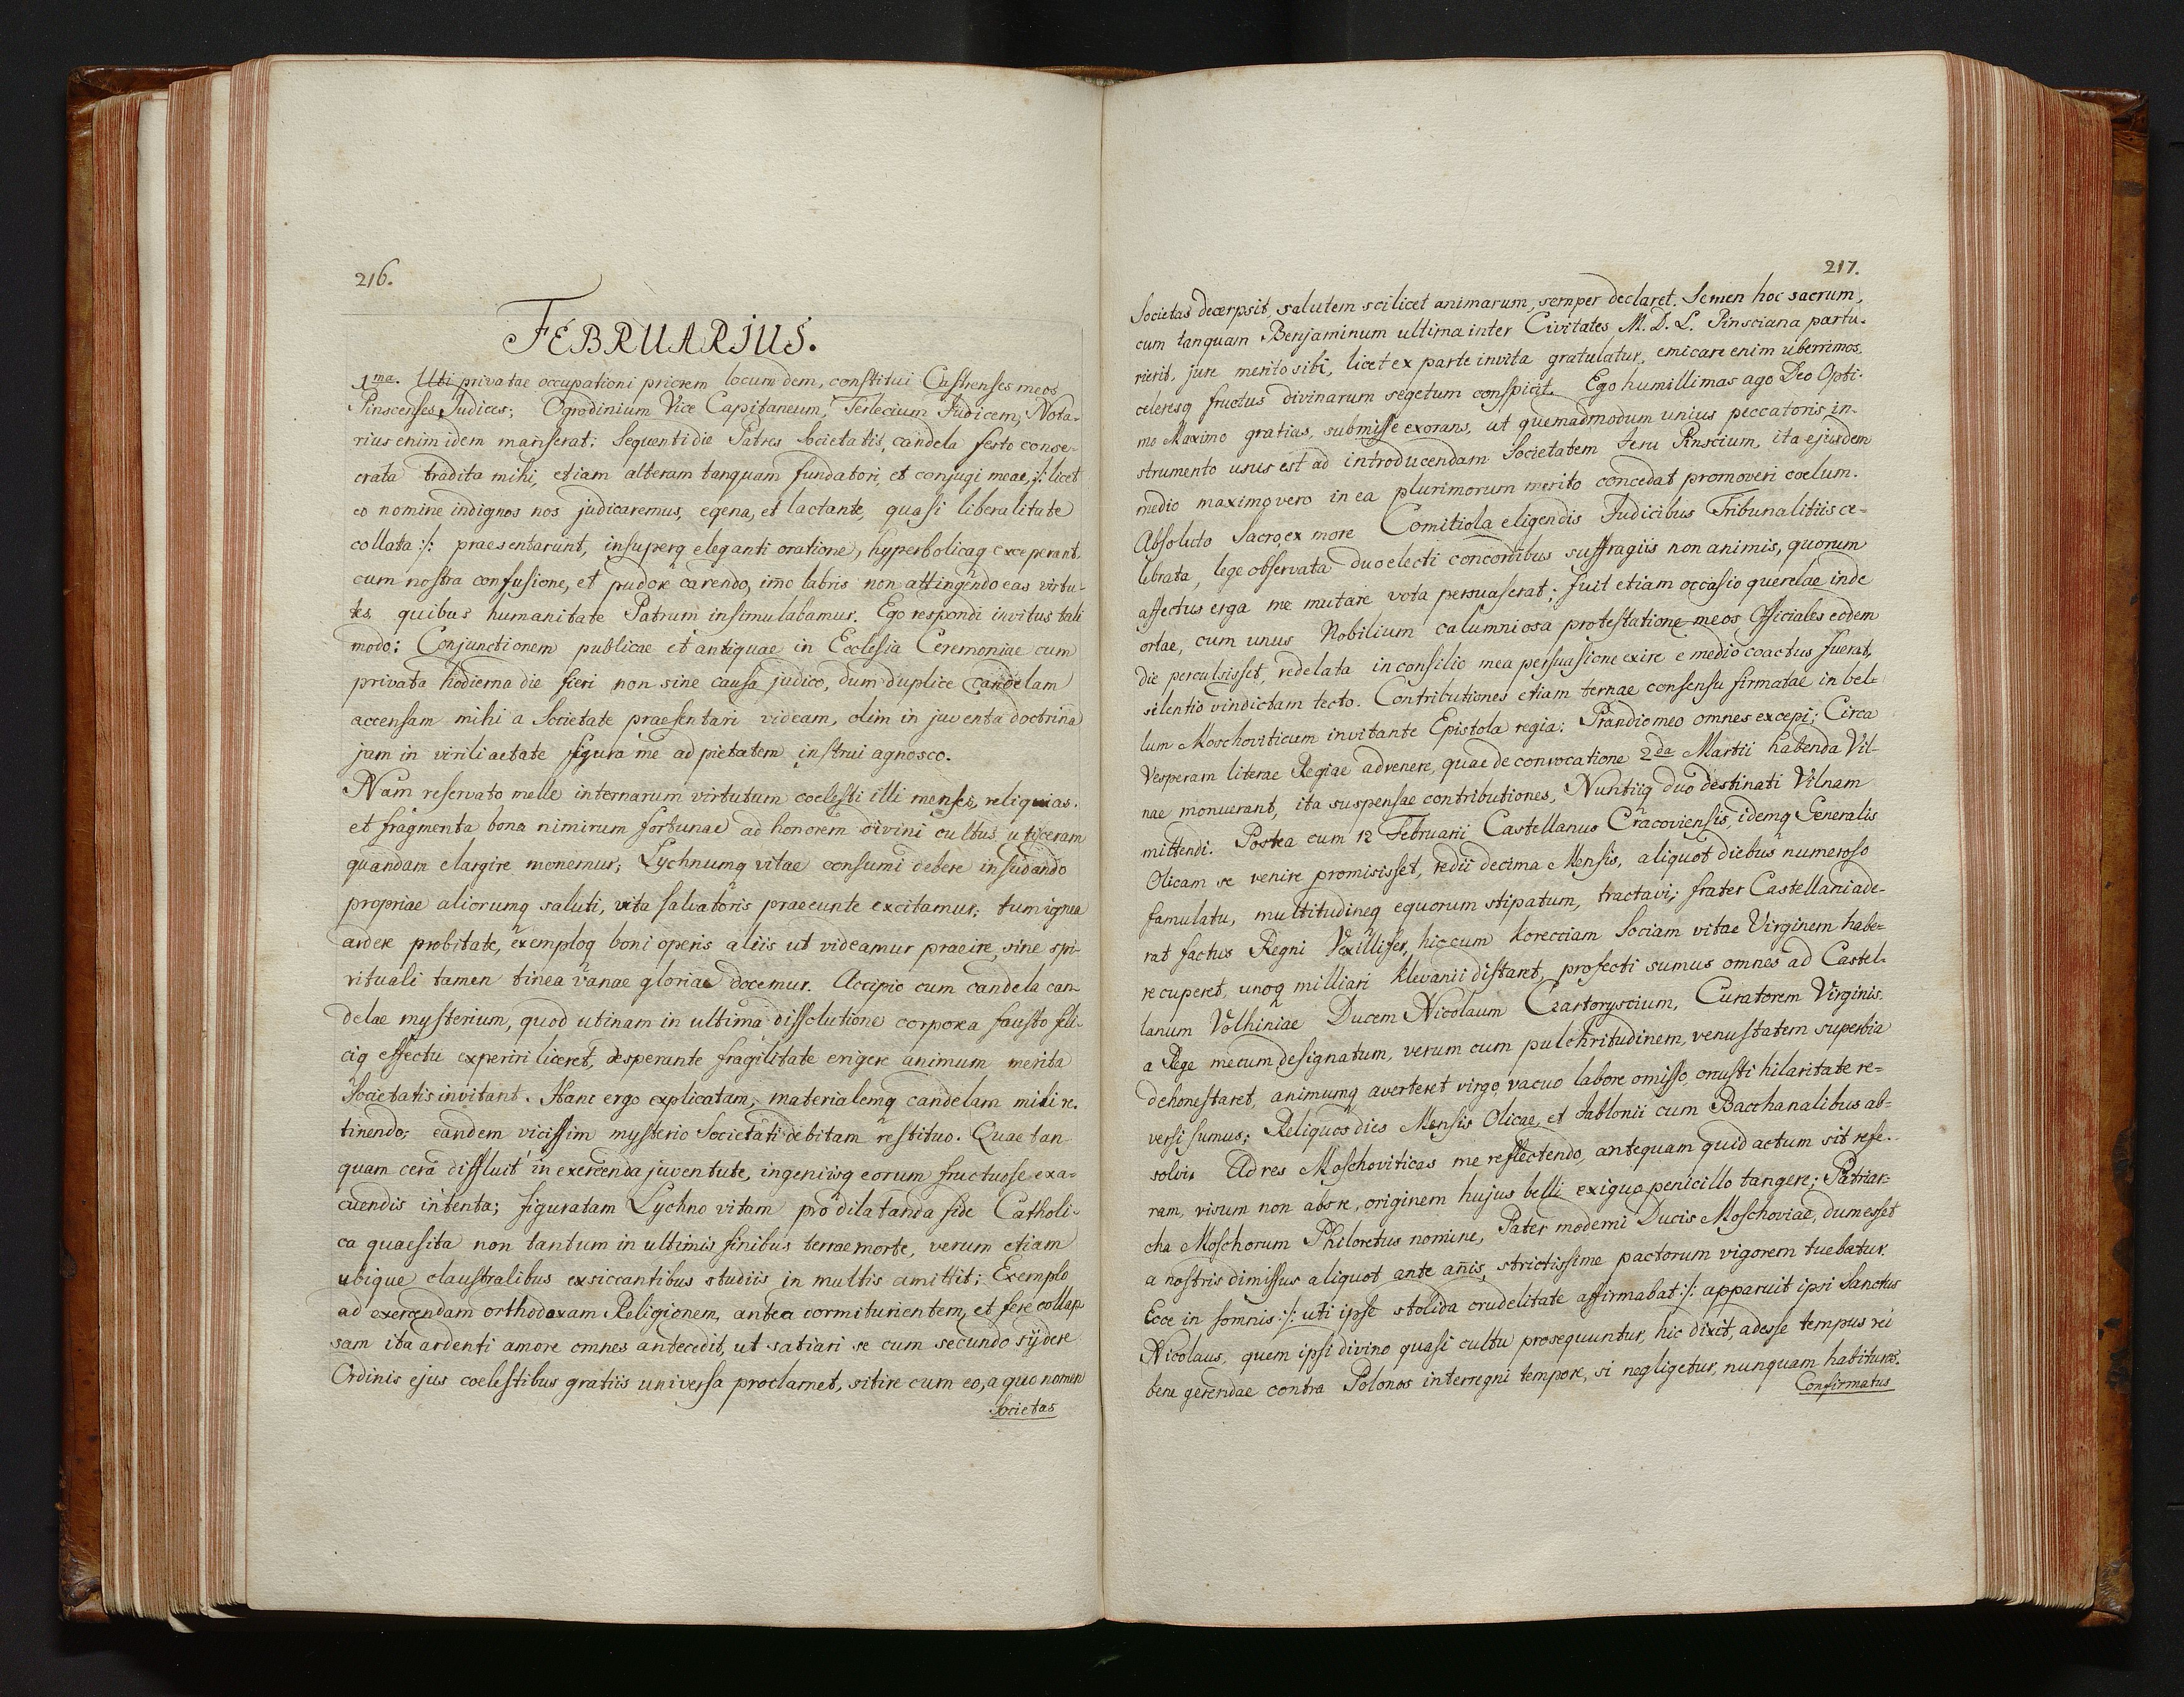 216.
FEBRUARIUS.
1ma. Uti privatae occupationi priorem locum dem, constitui Castrenses meos
Pinscenses Judices; Ogrodinium Vice Capitaneum, Terlecium Judicem, Nota-
rius enim idem manserat; Sequenti die Patres Societatis, candela festo conse-
crata tradita mihi, etiam alteram tanquam fundatori, et conjugi meae, :/: licet
eo nomine indignos nos judicaremus, egena, et lactante, quasi liberalitate
collata :/: praesentarunt, insuperq eleganti oratione, hyperbolicaq exceperant
cum nostra confusione, et pudore carendo, imo labris non attingendo eas virtu-
tes, quibus humanitate Patrum insimulabamur. Ego respondi invitus tali
modo: Conjunctionem publicae et antiquae in Ecclesia Ceremoniae cum
privata hodierna die fieri non sine causa judico, dum duplice candelam
accensam mihi a Societate praesentari videam, olim in juventa doctrina
jam in virili aetate figura me ad pietatem instrui agnosco.
Nam reservato melle internarum virtutum coelesti illi mensi, reliquias.
et fragmenta bona nimirum fortunae ad honorem divini cultus uti ceram
quandam elargire monemur; Lychnumq vitae consumi debere insudando
propriae aliorumq saluti, vita Salvatoris praeeunte excitamur; tum ignea
ardere probitate, exemploq boni operis aliis ut videamur praeire, sine spi-
rituali tamen tinea vanae gloriae docemur. Accipio cum candela can-
delae mysterium, quod utinam in ultima dissolutione corporea fausto feli-
ciq effectu experiri liceret, desperante fragilitate erigere animum merita
Societatis invitant. Hanc ergo explicatam, materialemq candelam mihi re-
tinendo, eandem vicissim mysterio Societati debitam restituo. Quae tan
quam cera diffluit in exercenda juventute, ingeniisq eorum fructuose exa-
cuendis intenta; figuratam Lychno vitam pro dilatanda fide Catholi-
ca quaesita non tantum in ultimis finibus terrae morte, verum etiam
ubique claustralibus exsiccantibus studiis in multis amittit; Exemplo
ad exercendam orthodoxam Religionem, antea dormiturientem, et fere collap
sam ita ardenti amore omnes antecedit, ut satiari se cum secundo sydere
Ordinis ejus coelestibus gratiis universa proclamet, sitire cum eo, a quo nomen
Societas
217.
Societas decerpsit, salutem scilicet animarum, semper declaret. Semen hoc sacrum,
cum tanquam Benjaminum ultima inter Civitates M. D. L. Pinsciana partu-
rierit, jure merito sibi, licet ex parte invita gratulatur, emicare enim uberrimos,
celeresq fructus divinarum segetum conspicit. Ego humillimas ago Deo Opti-
mo Maximo gratias, submisse exorans, ut quemadmodum unius peccatoris in-
strumento usus est ad introducendam Societatem Jesu Pinscium, ita ejusdem
medio maximo vero in ea plurimorum merito concedat promoveri coelum.
Absoluto Sacro, ex more Comitiola eligendis Judicibus Tribunalitiis ce-
lebrata, lege observata duo electi concordibus suffragiis non animis, quorum
affectus erga me mutare vota persuaserat; fuit etiam occasio querelae inde
ortae, cum unus Nobilium calumniosa protestatione meos Officiales eodem
die perculsisset, re delata in consilio mea persuasione exire e medio coactus fuerat,
silentio vindictam tecto. Contributiones etiam ternae consensu firmatae in bel-
lum Moschoviticum invitante Epistola regia: Prandio meo omnes excepi; Circa
Vesperam literae Regiae advenere, quae de convocatione 2da Martii habenda Vil-
nae monuerant, ita suspensae contributiones, Nuntiiq duo destinati Vilnam
mittendi. Postea cum 12 Februarii Castellanus Cracoviensis, idemq Generalis
Olicam se venire promisisset, redii decima Mensis, aliquot diebus numeroso
famulatu, multitudineq equorum stipatum, tractavi; frater Castellani ade-
rat factus Regni Vexillifer, hic cum Korecciam Sociam vitae Virginem habe-
re cuperet, unoq milliari Klevanii distaret, profecti sumus omnes ad Castel-
lanum Volhiniae Ducem Nicolaum Czartoryscium, Curatorem Virginis.
a Rege mecum designatum, verum cum pulchritudinem, venustatem superbia
dehonestaret, animumq averteret virgo, vacuo labore omisso, onusti hilaritate re-
versi sumus; Reliquos dies Mensis Olicae, et Jablonii cum Bacchanalibus ab-
solvi. Ad res Moschoviticas me reflectendo, antequam quid actum sit refe-
ram, visum non abs re, originem hujus belli exiguo penicillo tangere; Patriar-
cha Moschorum Philoretus nomine, Pater moderni Ducis Moschoviae, dum esset
a nostris dimissus aliquot ante anis, strictissime pactorum vigorem tuebatur.
Ecce in somnis :/: uti ipse stolida crudelitate affirmabat :/: apparuit ipsi Sanctus
Nicolaus, quem ipsi divino quasi cultu prosequuntur, hic dixit, adesse tempus rei
bene gerendae contra Polonos interregni tempore, si negligetur, nunquam habituros.
Confirmatus